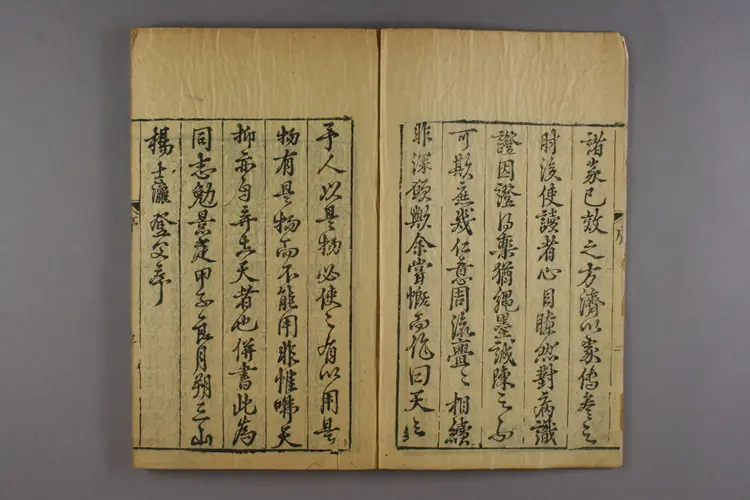 諸家已效之方濟以家傳參之
肘後使讀者心目瞭然對病識
證因證得藥猶繩墨誠陳之不
可欺庶幾仁意周流亹〻相續
非深願歟余嘗慨而作曰天之
予人以是物必使之有以用是
物有是物而不能用非惟咈天
抑亦自棄其天者也併書此為
同志勉景定甲子良月朔三山
楊士瀛登父序